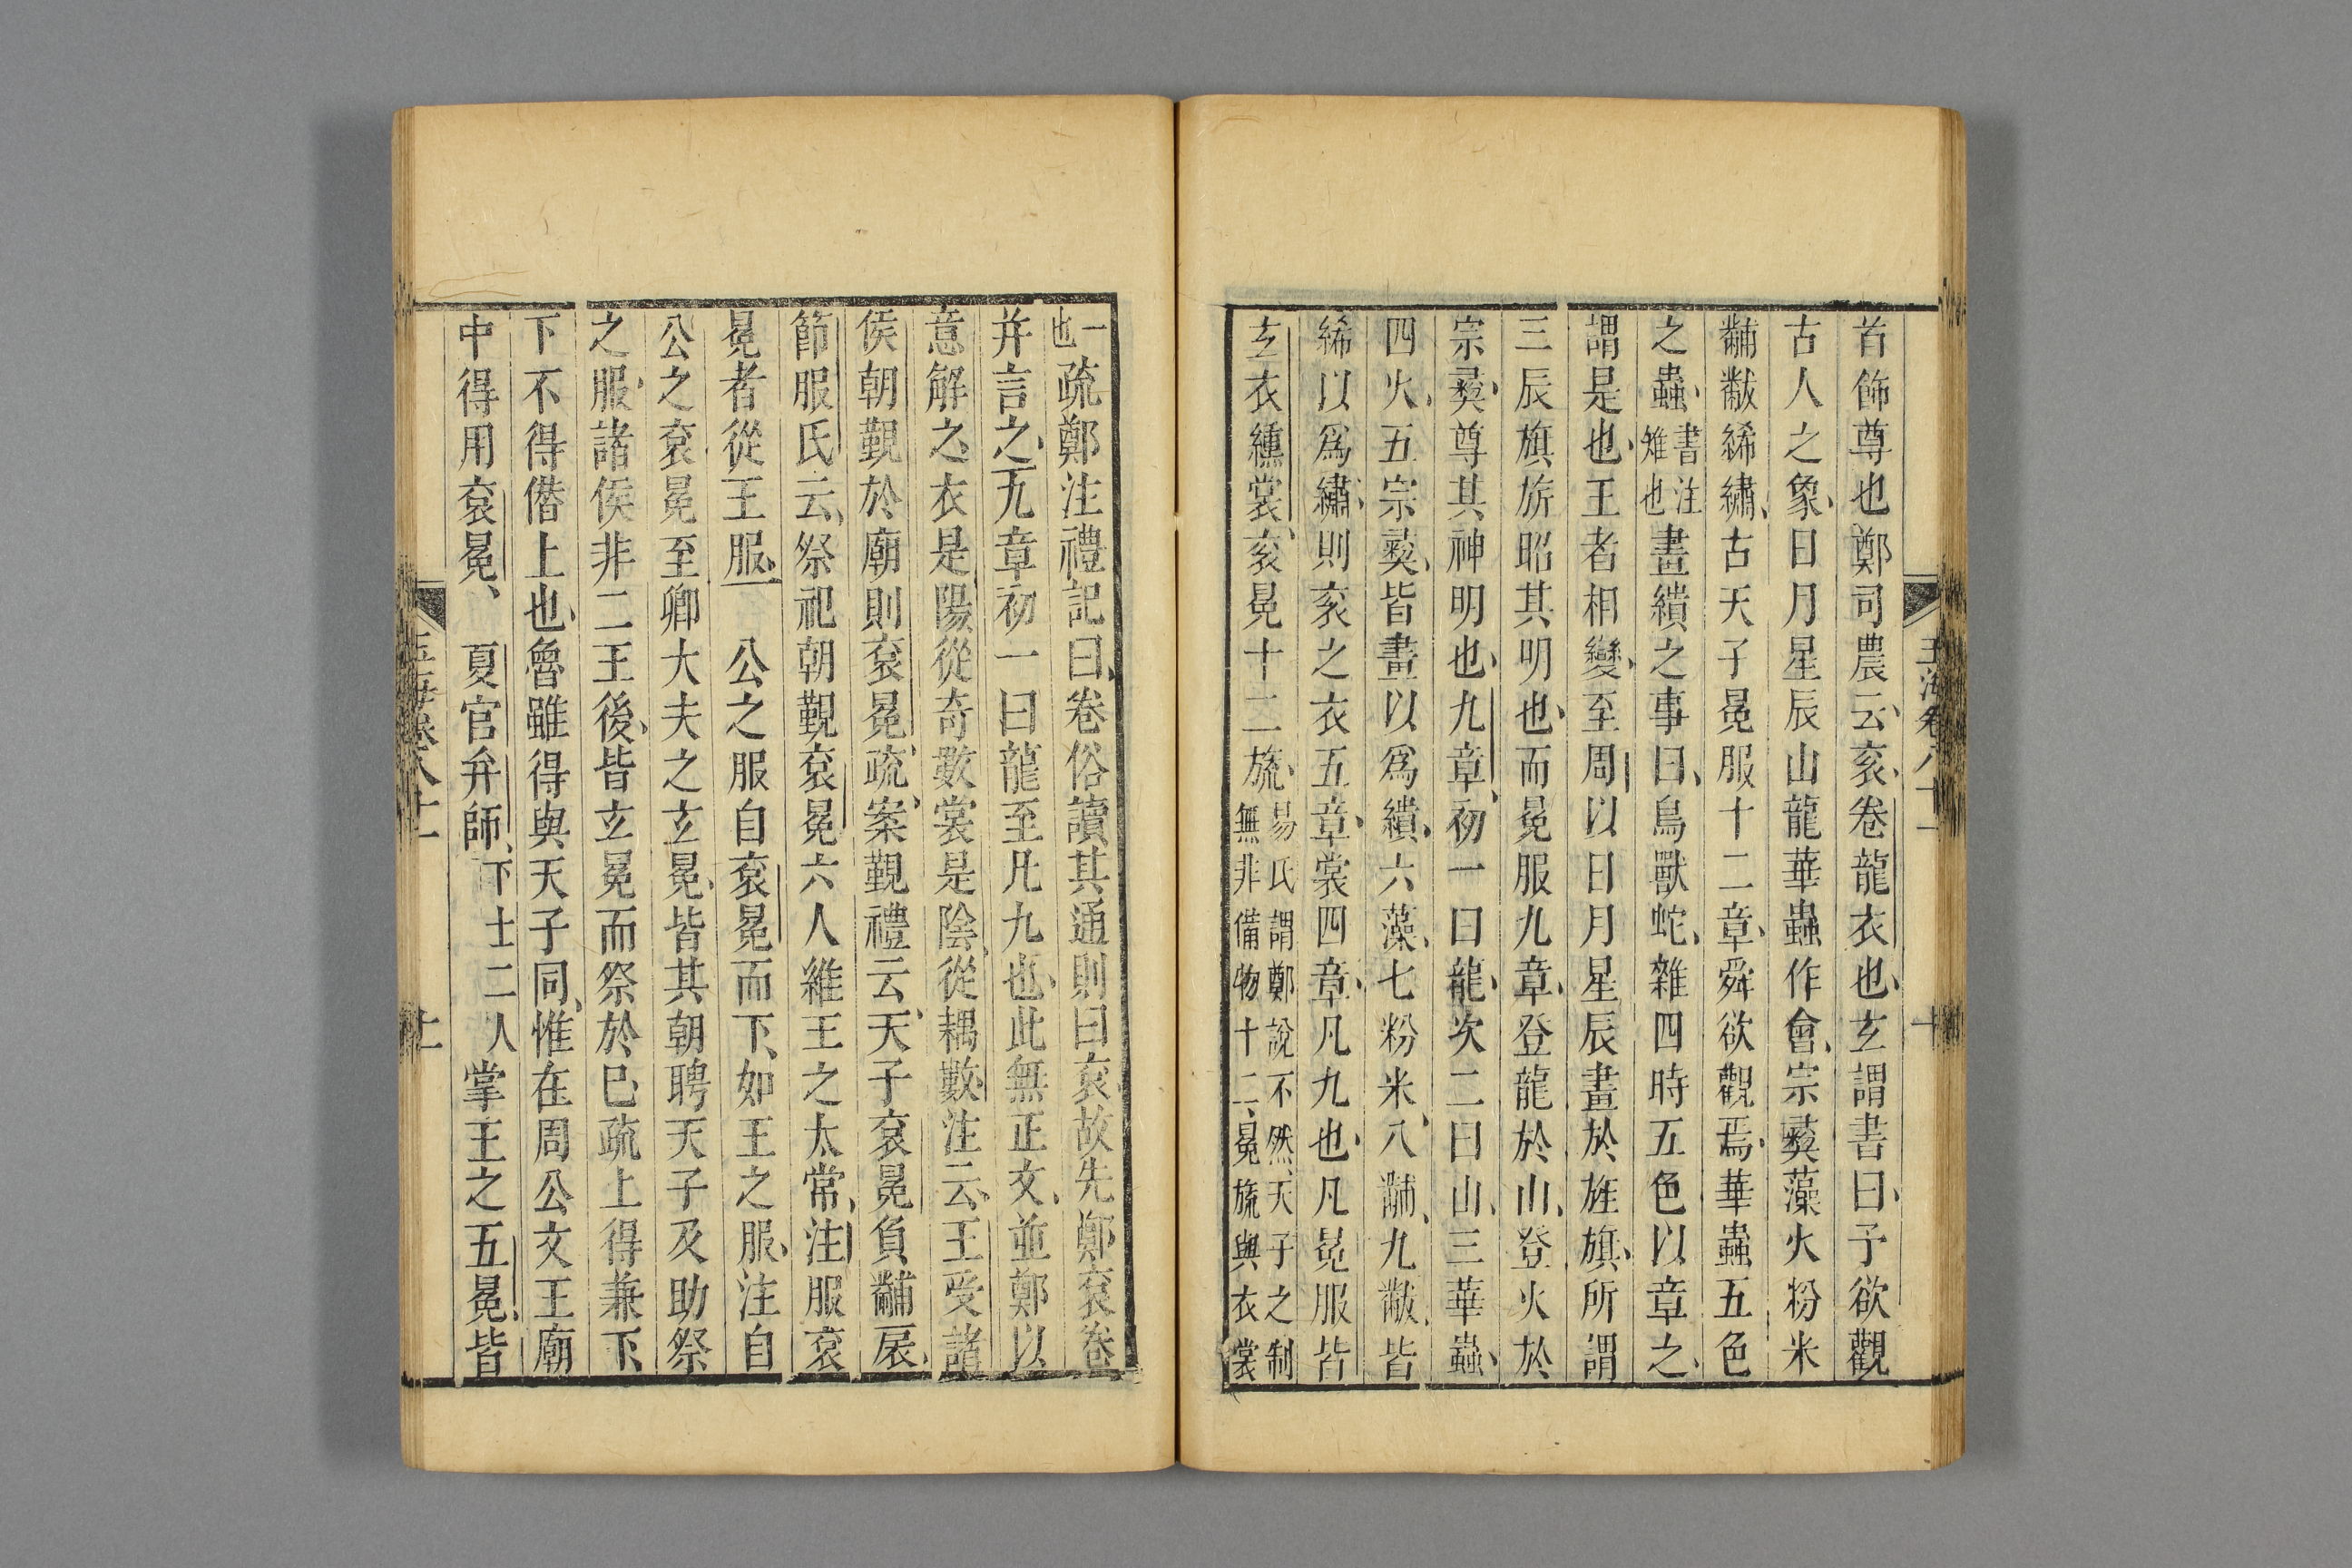 首飾尊也鄭司農云衮卷龍衣也玄謂書曰予欲觀
古人之象日月星辰山龍華蟲作會宗彝藻火粉米
黼黻絺繡古天子冕服十二章舜欲觀焉華蟲五色
之蟲書注雉也畫繢之事曰鳥獸蛇雜四時五色以章之
謂是也王者相變至周以日月星辰畫於旌旗所謂
三辰旗旂昭其明也而冕服九章登龍於山登火於
宗彝尊其神明也九章初一曰龍次二曰山三華蟲
四火五宗彝皆畫以爲繢六藻七粉米八黼九黻皆
絺以爲繡則衮之衣五章裳四章凡九也凡冕服皆
玄衣纁裳衮冕十二旒易氏謂鄭說不然天子之制無非備物十二冕旒與衣裳
一也疏鄭注禮記曰卷俗讀其通則曰衮故先鄭衮卷
并言之九章初一曰龍至凡九也此無正文並鄭以
意解之衣是陽從奇數裳是陰從耦數注云王受諸
侯朝覲於廟則衮冕疏案覲禮云天子衮冕負黼扆
節服氏云祭祀朝覲衮冕六人維王之太常注服衮
冕者從王服　公之服自衮冕而下如王之服注自
公之衮冕至卿大夫之玄冕皆其朝聘天子及助祭
之服諸侯非二王後皆玄冕而祭於巳疏上得兼下
下不得僭上也魯雖得與天子同惟在周公文王廟
中得用衮冕　夏官弁師下士二人掌王之五冕皆
玉海卷八十一　十
玉海卷八十一　十一